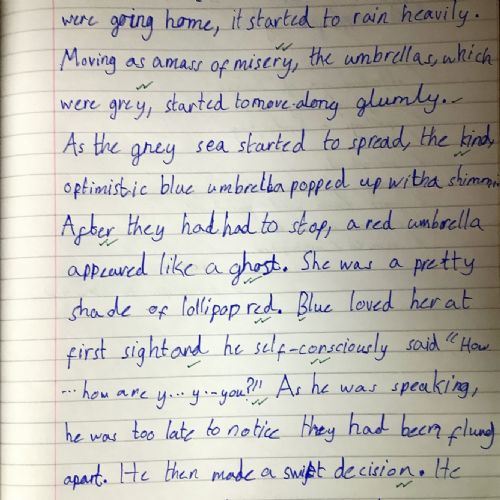 were going home, it started to rain heavily.
Moving as a mass of misery, the umbrellas, which
were grey, started to move along glumly.
As the grey sea started to spread, the kind,
optimistic blue umbrella popped up with a
After they had had to stop, a red umbrella
appeared like a ghost. She was a pretty
shade of lollipop red. Blue loved her at
first sight and he self-consciously said "How
...how are y... y--you?!" As he was speaking,
he was too late to notice they had been flung
apart. He then made a swift decision. He